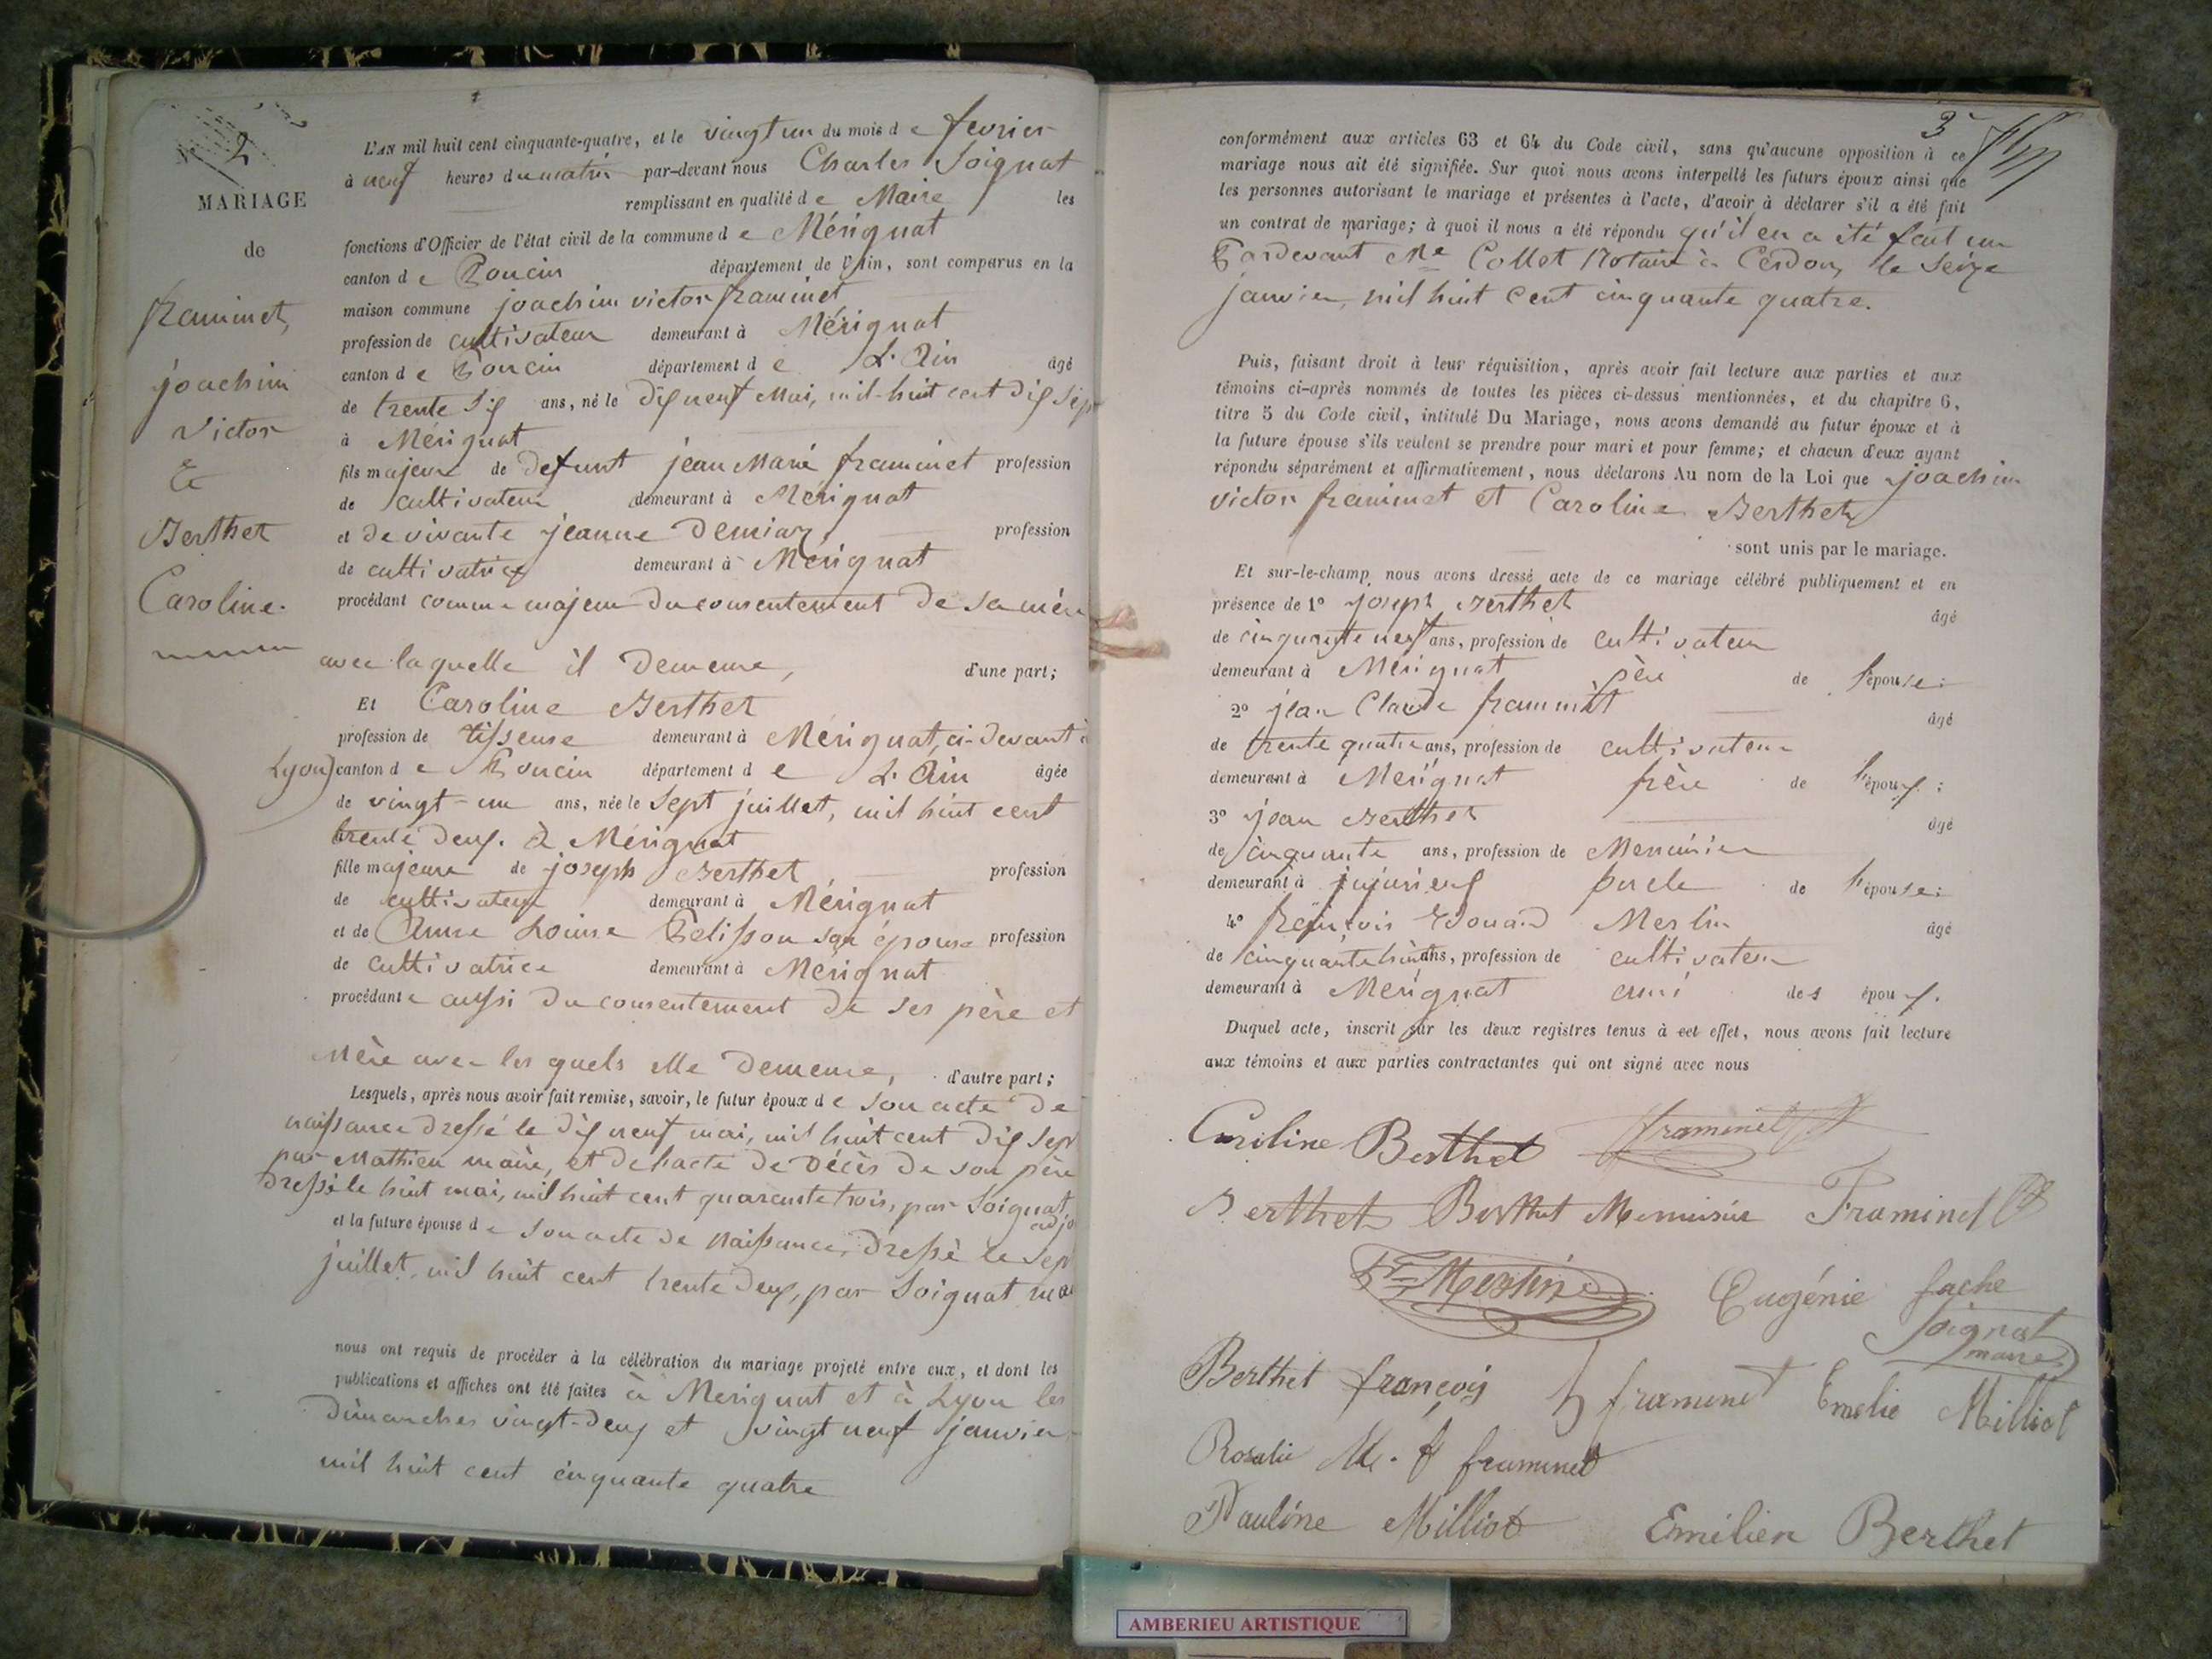 N° 2
MARIAGE
de
framinet,
joachim
victor
&
Berthet
Caroline.
L'AN mil huit cent cinquante-quatre, et le vingt un du mois de fevrier
à neuf heures du matin par-devant nous Charles Soignat
remplissant en qualité de Maire les
fonctions d'Officier de l'état civil de la commune de Mérignat
canton de Poncin département de l'Ain, sont comparus en la
maison commune joachim victor framinet
profession de cultivateur demeurant à Mérignat
canton de Poncin département de L'Ain âgé
de trente six ans, né le dix neuf Mai, mil-huit cent dix sept
à Mérignat
fils majeur de defunt jean Marie framinet profession
de cultivateur demeurant à Mérignat
et de vivante jeanne Demiaz profession
de cultivatrice demeurant à Mérignat
procédant comme majeur du consentement de sa mère
avec laquelle il demeure, d'une part;
Et Caroline Berthet
profession de tisseuse demeurant à Mérignat, ci-devant à
Lyon) canton de Poncin département de L'Ain âgée
de vingt-un ans, née le sept juillet, mil huit cent
trente deux. à Mérignat
fille majeure de joseph Berthet profession
de cultivateur demeurant à Mérignat
et de Anne Louise Pelisson son épouse profession
de cultivatrice demeurant à Mérignat
procédante aussi du consentement de ses père et
Mère avec les quels elle demeure, d'autre part;
Lesquels, après nous avoir fait remise, savoir, le futur époux de son acte de
naissance dressé le dix neuf mai, mil huit cent dix sept
par Mathieu maire, et de l'acte de décès de son père
dressé le huit mai, mil huit cent quarante trois, par Soignat
adjo
et la future épouse de son acte de naissance, dressé le sep
juillet, mil huit cent trente deux, par Soignat ma
nous ont requis de procéder à la célébration du mariage projeté entre eux, et dont les
publications et affiches ont été faites à Merignat et à Lyon les
dimanches vingt-deux et vingt neuf janvier
mil huit cent cinquante quatre
3
conformément aux articles 63 et 64 du Code civil, sans qu'aucune opposition à ce
mariage nous ait été signifiée. Sur quoi nous avons interpellé les futurs époux ainsi que
les personnes autorisant le mariage et présentes à l'acte, d'avoir à déclarer s'il a été fait
un contrat de mariage; à quoi il nous a été répondu qu'il en a été fait un
Pardevant Me Collet Notaire à Cerdon, le seize
janvier, mil huit cent cinquante quatre.
Puis, faisant droit à leur réquisition, après avoir fait lecture aux parties et aux
témoins ci-après nommés de toutes les pièces ci-dessus mentionnées, et du chapitre 6,
titre 5 du Code civil, intitulé Du Mariage, nous avons demandé au futur époux et à
la future épouse s'ils veulent se prendre pour mari et pour femme; et chacun d'eux ayant
répondu séparément et affirmativement, nous déclarons Au nom de la Loi que joachim
victor framinet et Caroline Berthet
sont unis par le mariage.
Et sur-le-champ nous avons dressé acte de ce mariage célébré publiquement et en
présence de 1° joseph Berthet âgé
de cinquante neuf ans, profession de cultivateur
demeurant à Mérignat père de l'épouse:
2° jean Claude framinet âgé
de trente quatre ans, profession de cultivateur
demeurant à Merignat frère de l'époux:
3° jean Berthet âgé
de cinquante ans, profession de Menuisier
demeurant à jujurieux oncle de l'épouse:
4° françois Edouard Merlin âgé
de cinquante huit ans, profession de cultivateur
demeurant à Merignat ami des époux.
Duquel acte, inscrit sur les deux registres tenus à cet effet, nous avons fait lecture
aux témoins et aux parties contractantes qui ont signé avec nous
Caroline Berthet framinet
Berthet Berthet Menuisier Framinet
Merlin Eugénie fache
Soignat
maire
Berthet françois framinet Emelie Milliot
Rosalie M. f framinet
Pauline Milliot Emélien Berthet
AMBERIEU ARTISTIQUE